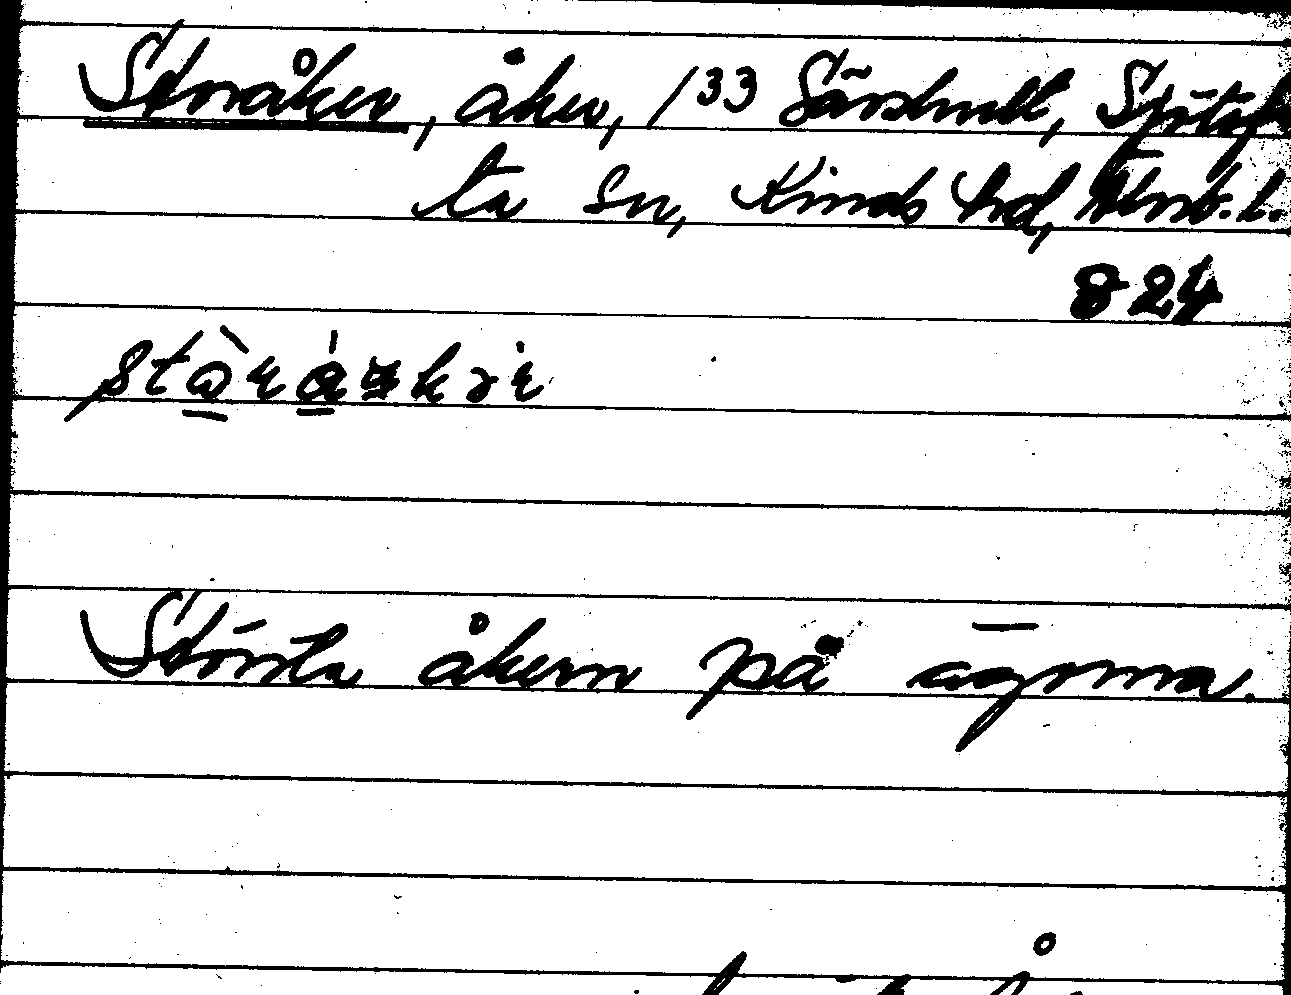 Storåker, åker, /33 Särshult, Sjötof
ta sn, Kinds hd, Älvsb. l.
824
Största åkern på ägorna.